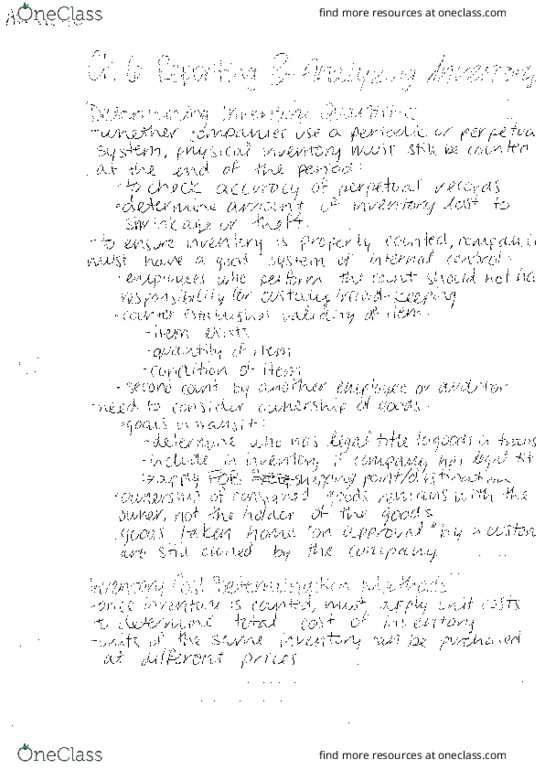 OneClass
find more resources at oneclass.com
Ch. 6 Reporting & Analyzing Inventory
Determining Inventory Quantities
-whether companies use a periodic or perpetua
system, physical inventory must still be counted
at the end of the period:
-to check accuracy of perpetual records
-determine amount of inventory lost to
shrinkage or theft.
-to ensure inventory is properly counted,
must have a good system of internal control:
-employees who perform the count should not ha
responsibility for custody/record-keeping
-counter establishes validity of item:
-item exists
-quantity of item
-condition of item
-second count by another employee or auditor
-need to consider ownership of goods.
-goods in transit:
-determine who has legal title to goods in trans
-include in inventory if company has legal tit
-apply FOB shipping point/destination
-ownership of consigned goods remains with the
owner, not the holder of the goods
-goods taken home "on approval" by a custom
are still owned by the company
Inventory Cost Determination Methods
-once inventory is counted, must apply unit costs
to determine total cost of inventory
-units of the same inventory can be purchased
at different prices
OneClass
find more resources at oneclass.com